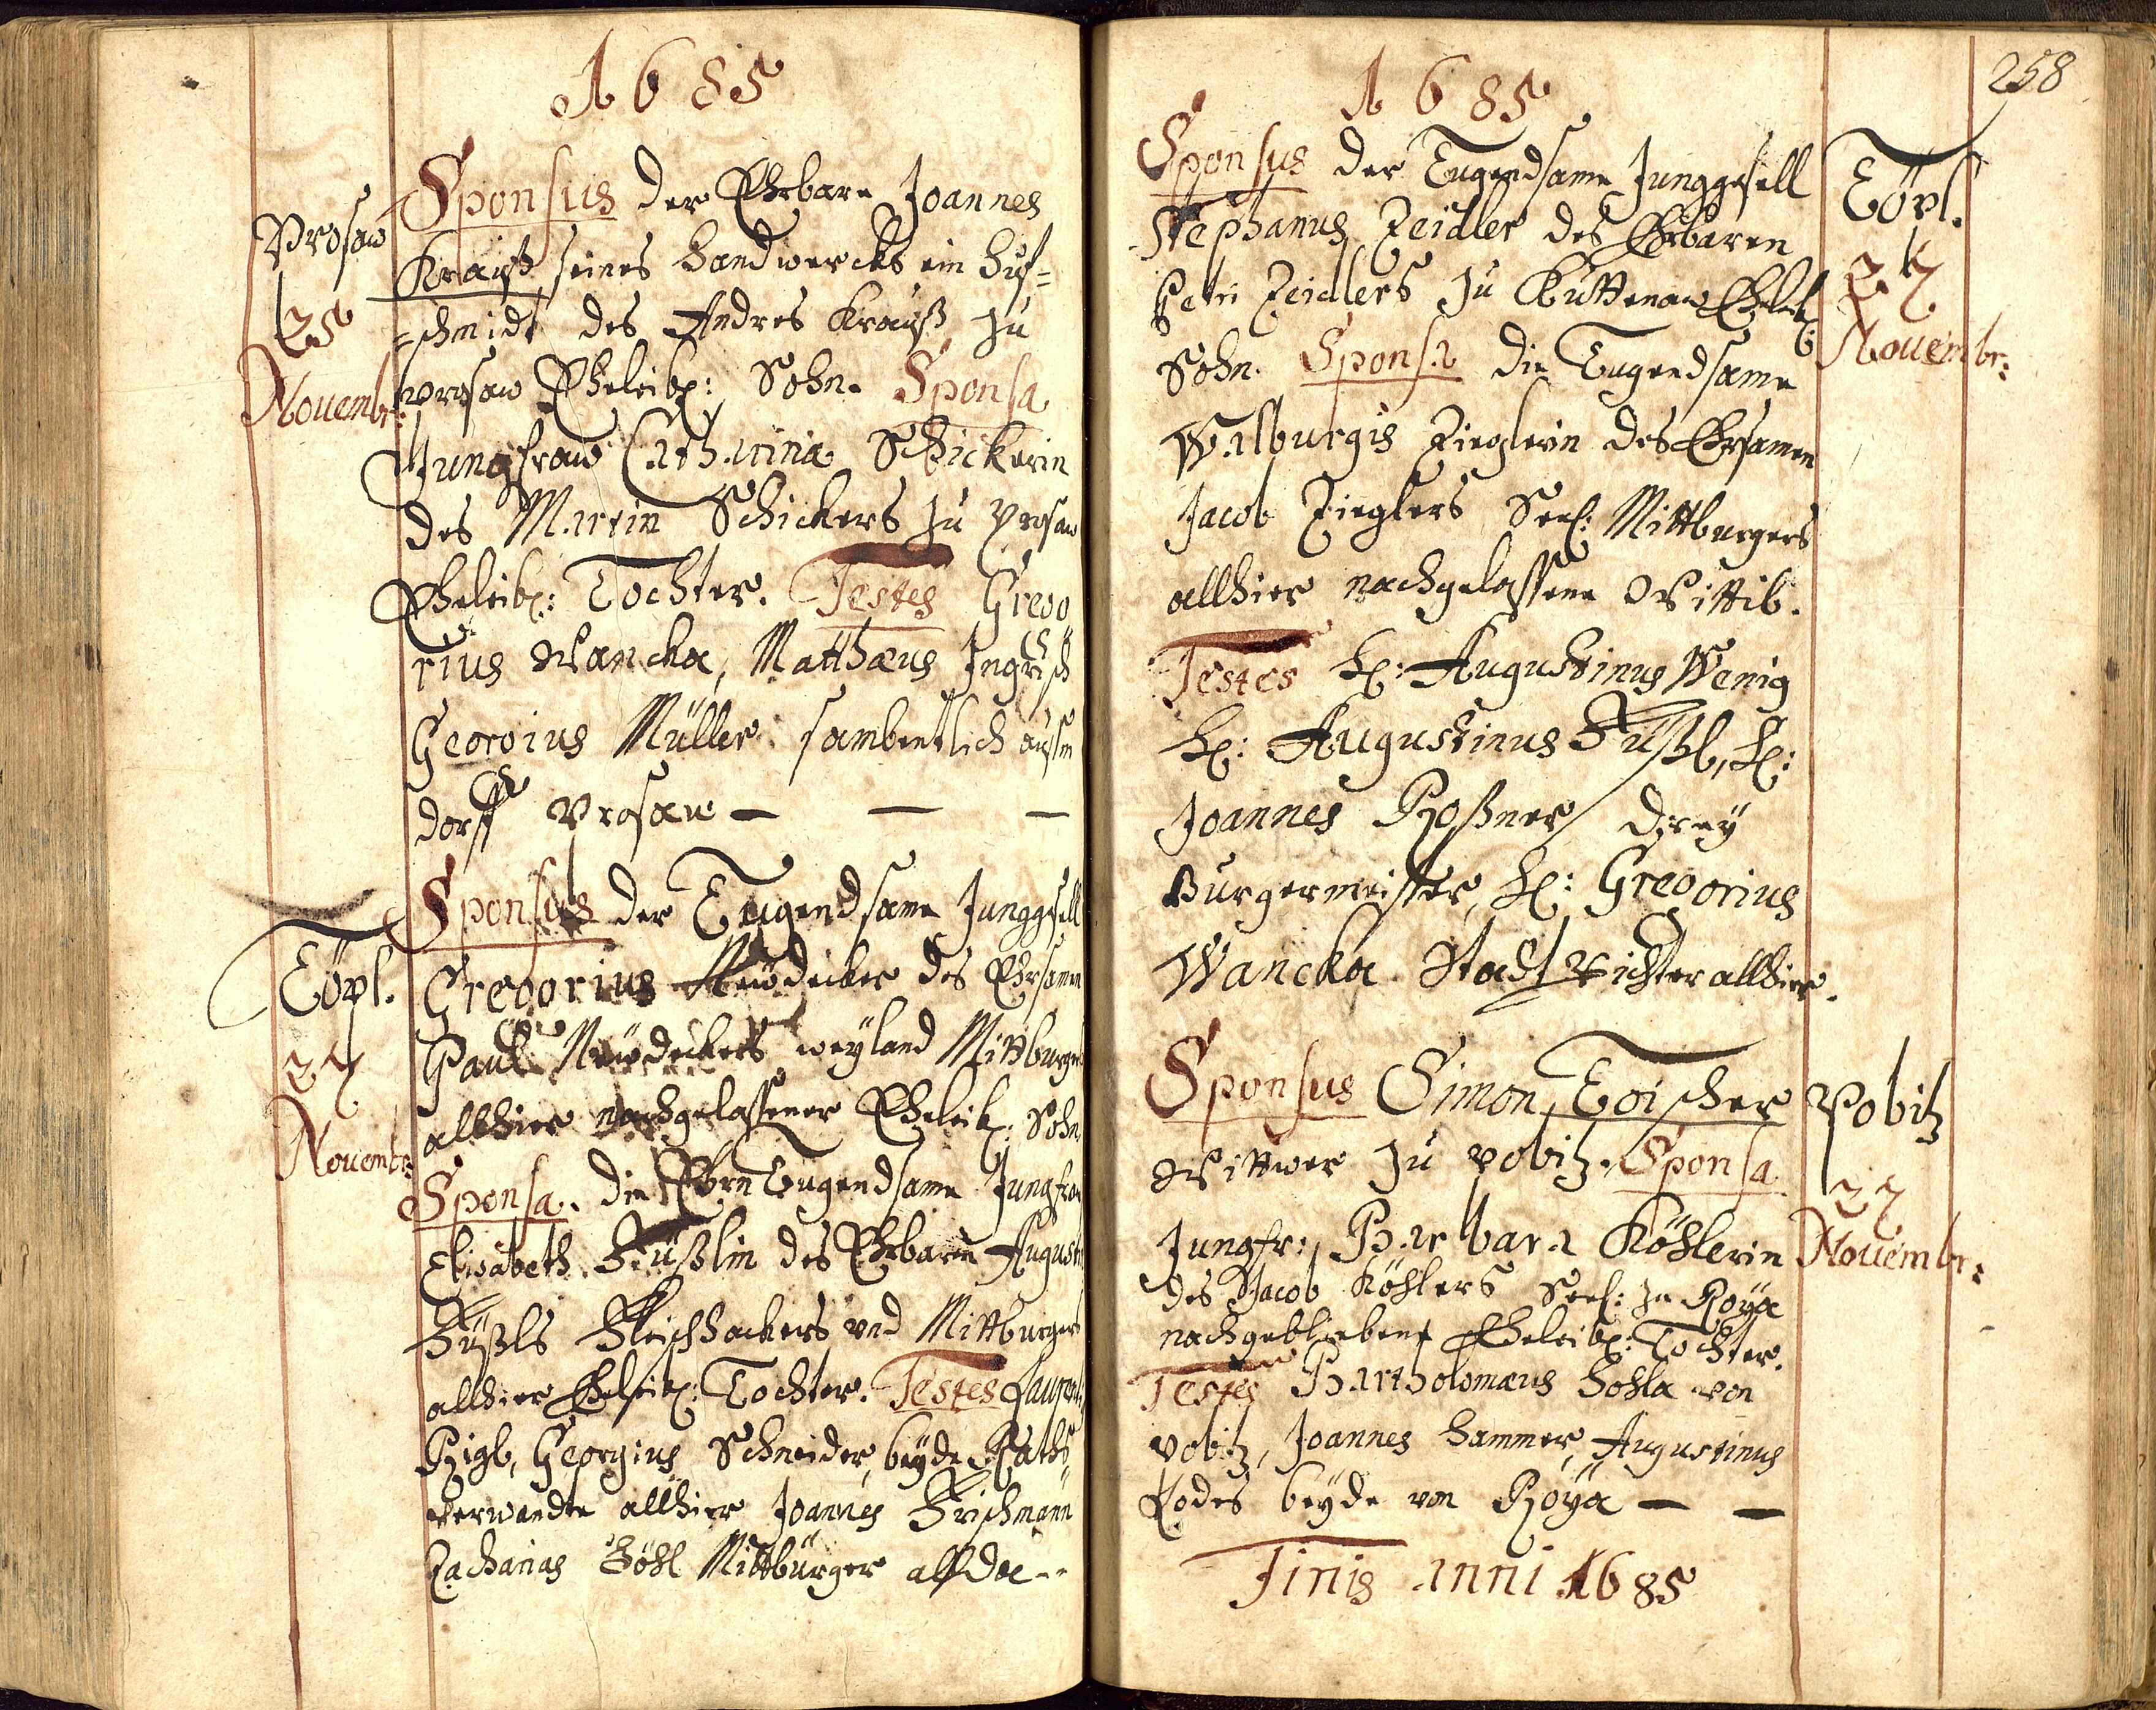 1685
Prosaw
25
Novembr:
Sponsus der Ehrbare Joannes
Krauß, seines Handwercks ein Huf=
=schmidt des Andres Krauß zu
Prosaw Eheleibl: Sohn. Sponsa
Jungfraw Catharina Schickerin
des Martin Schickers zu Prosaw
Eheleibl: Tochter. Testes Grego
rius Wancka, Matthæus Ingrisch
Georgius Müller. sambentlich außm
dorff Prosaw — — —
Töpl.
27
Novembr:
Sponsus der Tugendsame Junggesell
Gregorius Neudecker des Ehrsamen
Paul Neudeckers weyland Mittburgers
allhier nachgelassener Eheleibl: Sohn
Sponsa. die Ehrn Tugendsame Jungfraw
Elisabeth Füßlin des Ehrbarn August
Füßls Fleischhackers und Mittburgers
allhier Eheleibl: Tochter. Testes Laurenti
Rigl, Georgius Schneider, beyde Raths
verwandte allhier Joannes Frischmann
Zacharias Höhl Mittbürger allda --
258
1685
Töpl.
27
Novembr:
Sponsus der Tugendsame Junggesell
Stephanus Zeidler des Ehrbaren
Petri Zeidlers zu Kuttenaw Eheleibl:
Sohn. Sponsa die Tugendsame
Walburgis Zieglerin des Ehrsamen
Jacob Zieglers Seel: Mittburgers
allhier nachgelassene Wittib.
Testes H: Augustinus Wenig
H: Augustinus Füßl, H:
Joannes Roßner drey
Burgermeister, H: Gregorius
Wancka Stadt Richter allhier.
Pobitz
27
Novembr:
Sponsus Simon Toischer
Wittwer zu Pobitz. Sponsa
Jungfr: Barbara Köhlerin
des Jacob Köhlers Seel: zu Roya
nachgebliebene Eheleibl: Tochter.
Testes Bartholomæus Hohla von
Pobitz, Joannes Hammer, Augustinus
Lodes beyde von Roya — —
Finis anni 1685